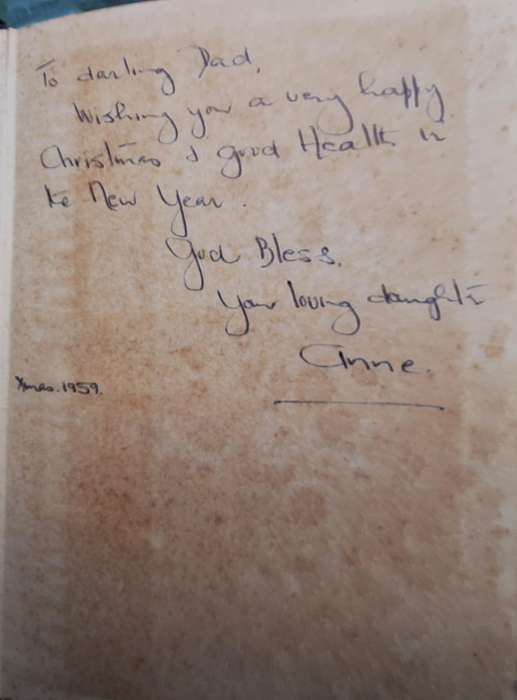 To darling Dad,
Wishing you a very happy
Christmas & good Health in
the New Year.
God Bless.
Your loving daughter
Anne.
Xmas. 1959.